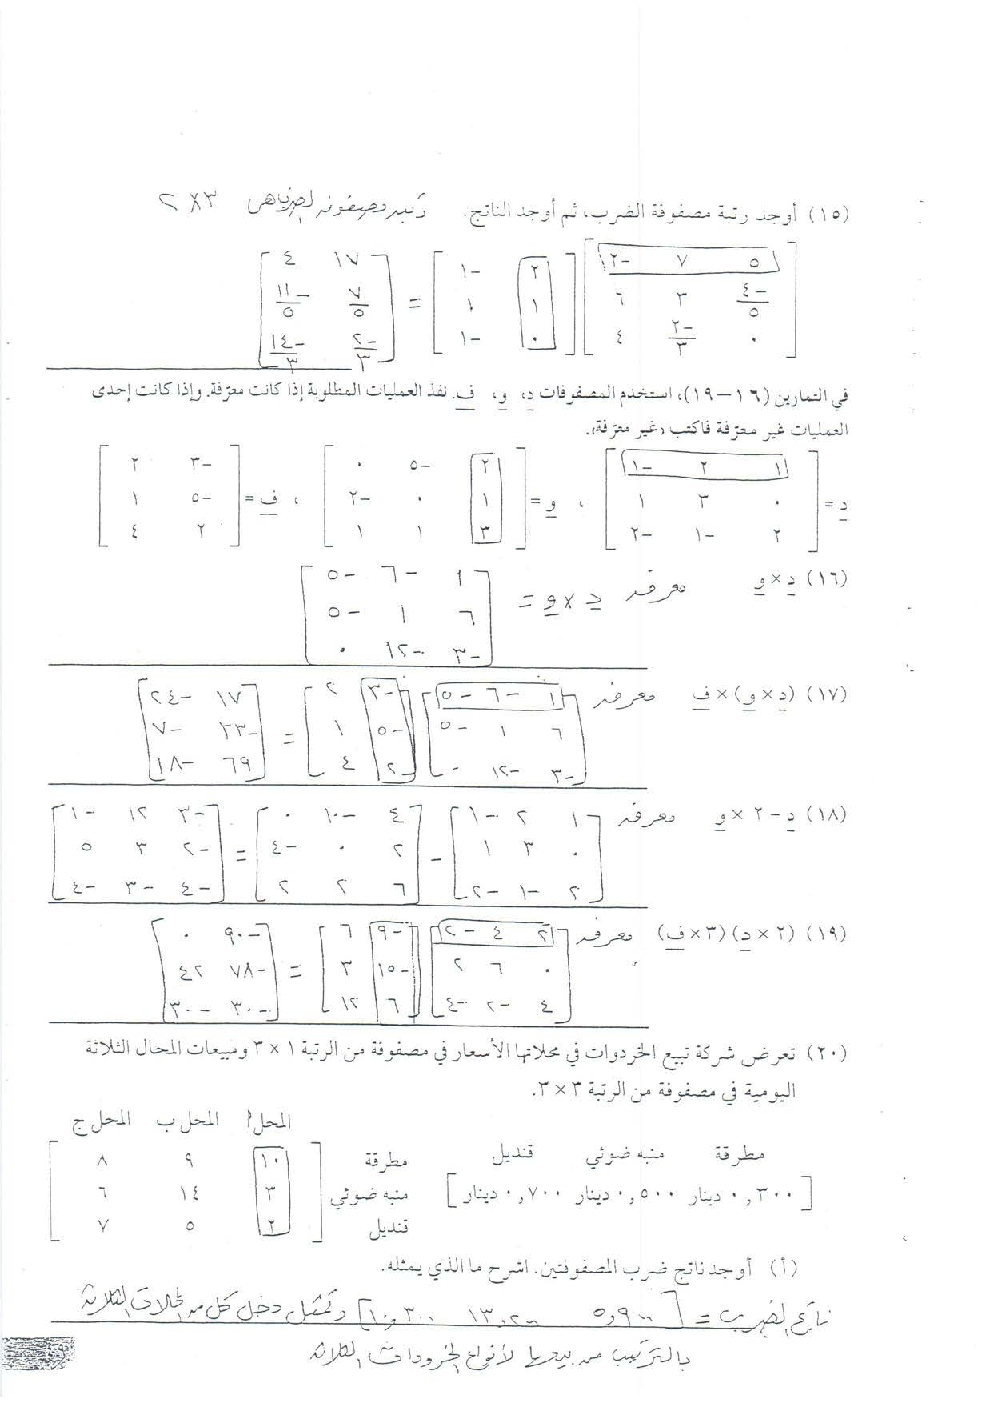 (١٥) أوجد رتبة مصفوفة الضرب، ثم أوجد الناتج. رتبة مصفوفة الضرب هي ٣×٢
[٥ ٧ -٢] [٢ -١] = [١٧ ٤]
[-٤/٥ ٣ ٦] [١ ١] = [٧/٥ -١١/٥]
[٠ -٢/٣ ٤] [٠ -١] = [-٢/٣ -١٤/٣]
في التمارين (١٦-١٩)، استخدم المصفوفات د، و، ف. نفذ العمليات المطلوبة إذا كانت معرّفة. وإذا كانت إحدى
العمليات غير معرّفة فاكتب «غير معرّفة».
د = [١ ٢ -١] ، و = [٢ -٥ ٠] ، ف = [-٣ ٢]
[٠ ٣ ١] [١ ٠ -٢] [-٥ ١]
[٢ -١ -٢] [٣ ١ ١] [٢ ٤]
(١٦) د×و معرفة د×و = [١ -٦ -٥]
[٦ ١ -٥]
[-٣ -١٢ ٠]
(١٧) (د×و)×ف معرفة [١ -٦ -٥] [-٣ ٢] = [١٧ -٢٤]
[٦ ١ -٥] [-٥ ١] [-٣٣ -٧]
[-٣ -١٢ ٠] [٢ ٤] [٦٩ -١٨]
(١٨) د-٢×و معرفة [١ ٢ -١] - [٤ -١٠ ٠] = [-٣ ١٢ -١]
[٠ ٣ ١] [٢ ٠ -٤] [-٢ ٣ ٥]
[٢ -١ -٢] [٦ ٢ ٢] [-٤ -٣ -٤]
(١٩) (٢×د)(٣×ف) معرفة [٢ ٤ -٢] [-٩ ٦] = [-٩٠ ٠]
[٠ ٦ ٢] [-١٥ ٣] [-٧٨ ٤٢]
[٤ -٢ -٤] [٦ ١٢] [-٣٠ -٣٠]
(٢٠) تعرض شركة تبيع الخردوات في محلاتها الأسعار في مصفوفة من الرتبة ١ × ٣ ومبيعات المحال الثلاثة
اليومية في مصفوفة من الرتبة ٣ × ٣.
المحل أ المحل ب المحل ج
مطرقة منبه ضوئي قنديل
[٠,٣٠٠ دينار ٠,٥٠٠ دينار ٠,٧٠٠ دينار]
مطرقة [١٠ ٩ ٨]
منبه ضوئي [٣ ١٤ ٦]
قنديل [٢ ٥ ٧]
(أ) أوجد ناتج ضرب المصفوفتين. اشرح ما الذي يمثله.
ناتج الضرب = [٥,٩٠٠ ١٣,٢٠٠ ١٠,٣٠٠] وتمثل دخل كل من المحلات الثلاثة
بالترتيب من بيعها لأنواع الخردوات الثلاثة